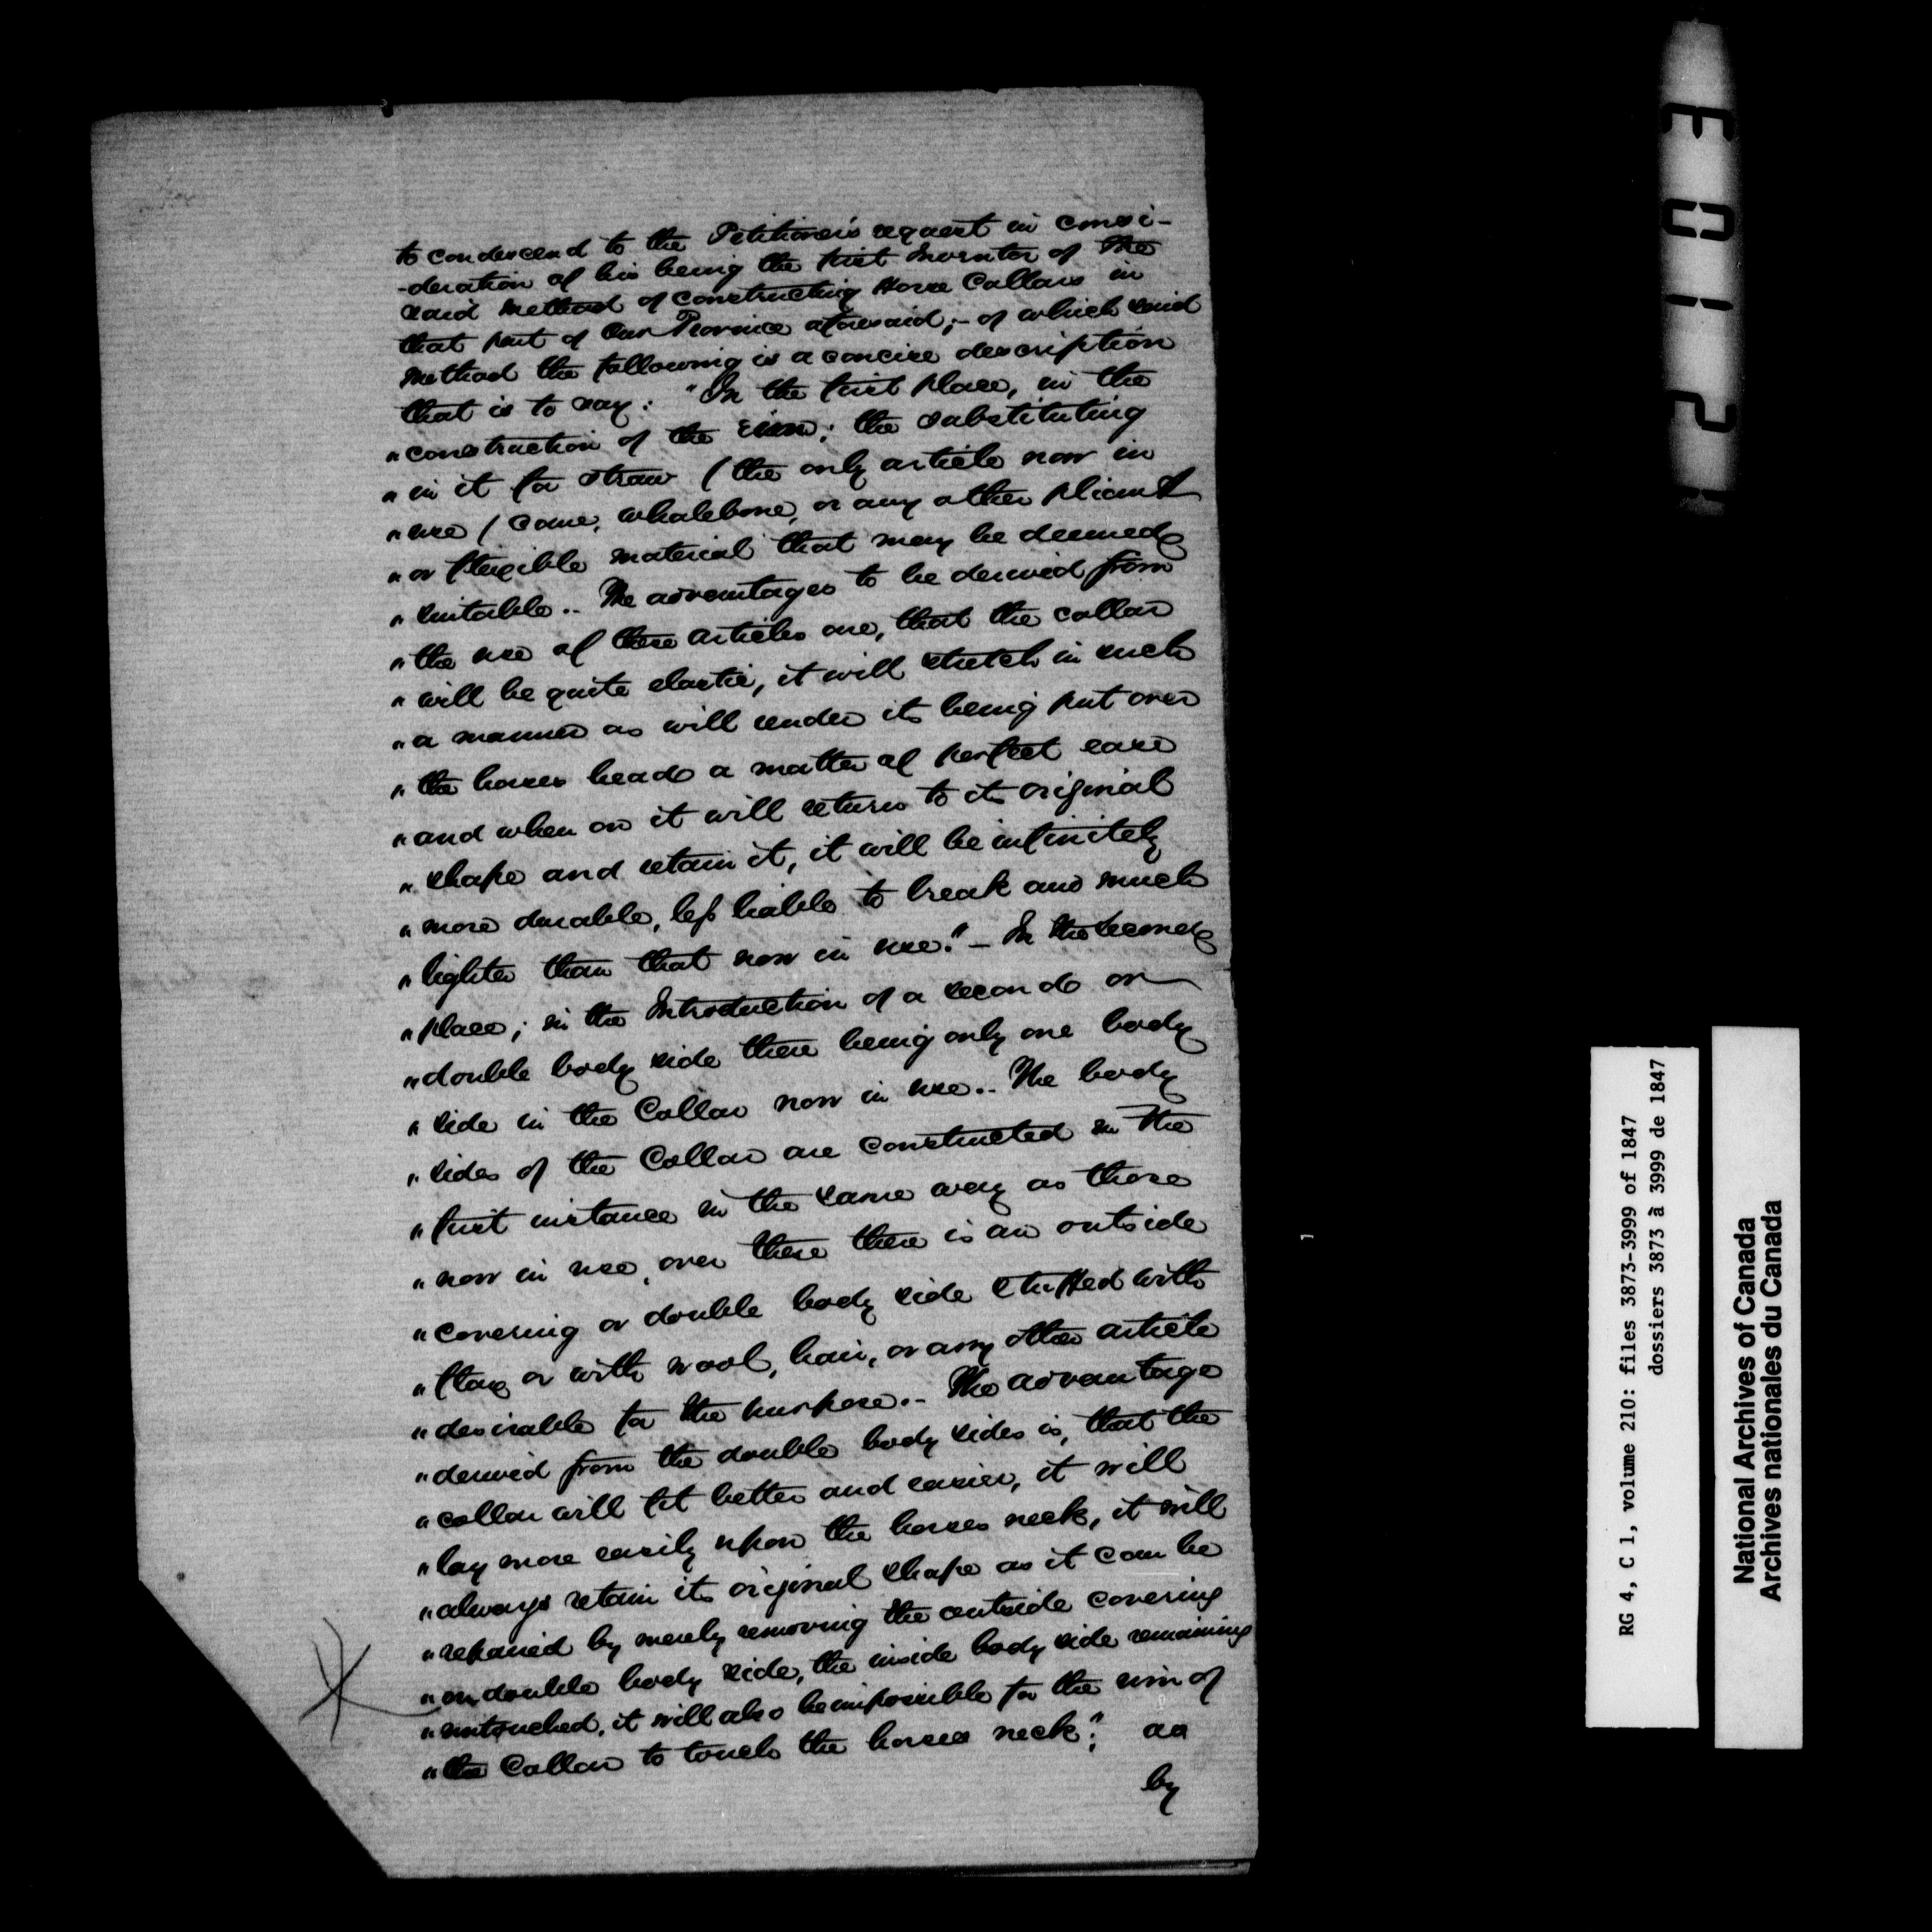 to condescend to the Petitioner's request in consi-
-deration of his being the first Inventor of the
said Method of constructing Horse Collars in
that part of Our Province aforesaid;- of which said
Method the following is a concise description
that is to say: "In the first place, in the
"construction of the rim; the substituting
"in it for straw (the only article now in
"use ( cane, whalebone, or any other pliant
"or flexible material that may be deemed
"suitable.. The advantages to be derived from
"the use of these articles are, that the collar
"will be quite elastic, it will stretch in such
"a manner as will render its being put over
"the horses head a matter of perfect ease
"and when on it will return to its original
"shape and retain it, it will be infinitely
"more durable, less liable to break and much
"lighter than that now in use."- In the second
"place; in the Introduction of a second or
"double body side there being only one body
"side in the Collar now in use.. The body
"sides of the Collar are constructed in the
"first instance in the same way as those
"now in use, over these there is an outside
"covering or double body side stuffed with
"flax or with wool, hair, or any other article
"desirable for the purpose.- The advantage
"derived from the double body sides is, that the
"collar will fit better and easier, it will
"lay more easily upon the horses neck, it will
"always retain its original shape as it can be
"repaired by merely removing the outside covering
"or double body side, the inside body side remaining
"untouched, it will also be impossible for the rim of
"the Collar to touch the horses neck"; as
by
E012
RG 4, C 1, volume 210: files 3873-3999 of 1847
dossiers 3873 à 3999 de 1847
National Archives of Canada
Archives nationales du Canada